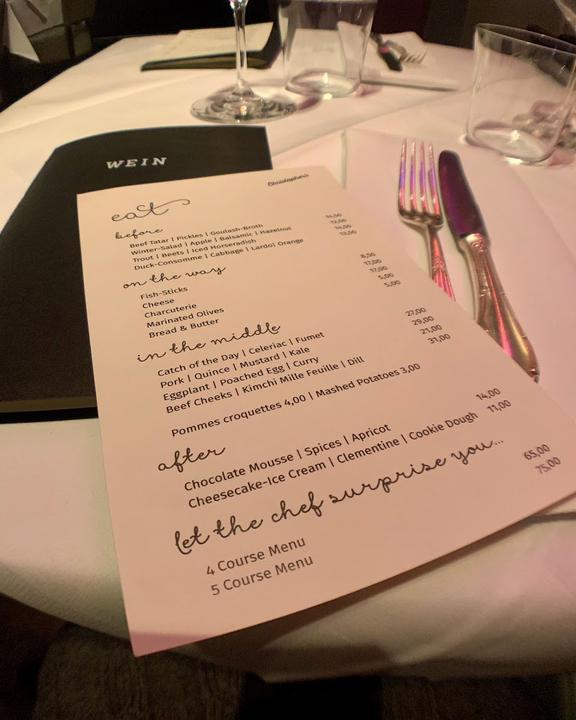 WEIN
Christopher's
eat
before
Beef Tatar | Pickles | Goulash-Broth 14,00
Winter-Salad | Apple | Balsamic | Hazelnut 12,00
Trout | Beets | Iced Horseradish 14,00
Duck-Consomme | Cabbage | Lardo | Orange 13,00
on the way
Fish-Sticks 8,00
Cheese 17,00
Charcuterie 17,00
Marinated Olives 5,00
Bread & Butter 5,00
in the middle
Catch of the Day | Celeriac | Fumet 27,00
Pork | Quince | Mustard | Kale 29,00
Eggplant | Poached Egg | Curry 21,00
Beef Cheeks | Kimchi Mille Feuille | Dill 31,00
Pommes croquettes 4,00 | Mashed Potatoes 3,00
after
Chocolate Mousse | Spices | Apricot 14,00
Cheesecake-Ice Cream | Clementine | Cookie Dough 11,00
let the chef surprise you...
4 Course Menu 65,00
5 Course Menu 75,00